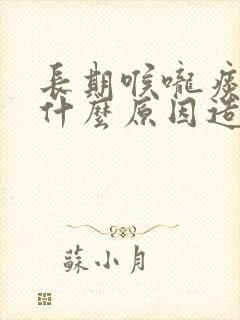 長期喉嚨痰
什麼原因造
蘇小月